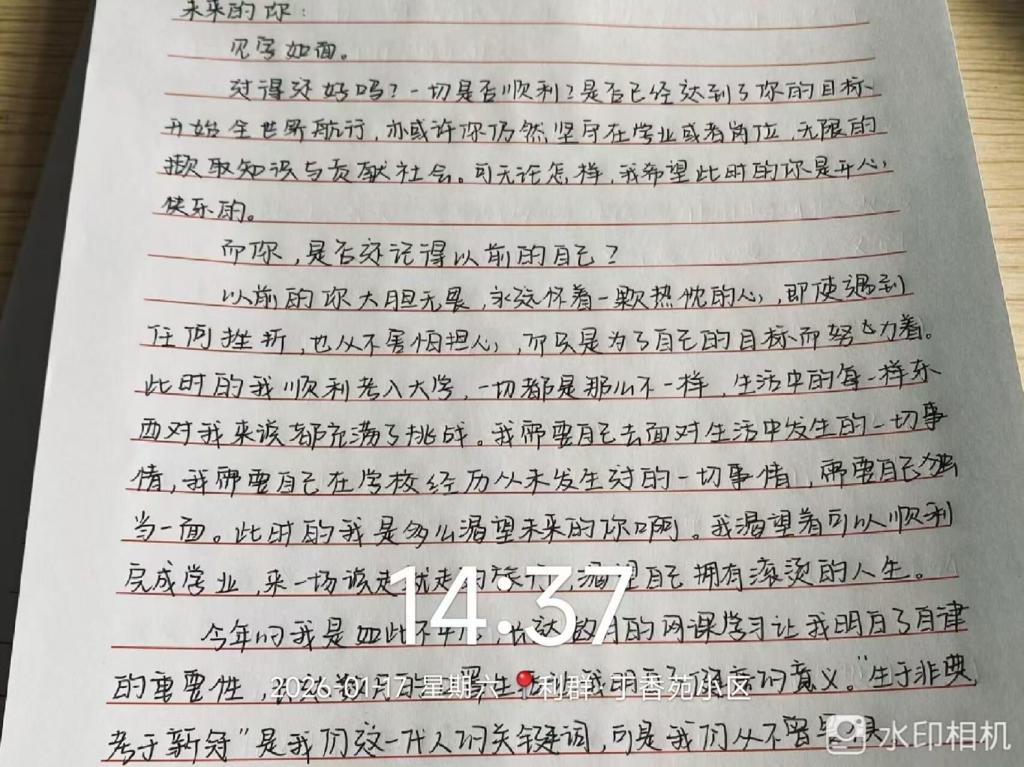 未来的你：
见字如面。
过得还好吗？一切是否顺利？是否已经达到了你的目标
开始全世界航行，亦或许你仍然坚守在学业或者岗位，无限的
撷取知识与贡献社会。可无论怎样，我希望此时的你是开心
快乐的。
而你，是否还记得以前的自己？
以前的你大胆无畏，永远怀着一颗热忱的心，即使遇到
任何挫折，也从不害怕担心，而只是为了自己的目标而努力着。
此时的我顺利考入大学，一切都是那么不一样，生活中的每一样东
西对我来说都充满了挑战。我需要自己去面对生活中发生的一切事
情，我需要自己在学校经历从未发生过的一切事情，需要自己独
当一面。此时的我是多么渴望未来的你啊。我渴望着可以顺利
完成学业，来一场说走就走的旅行，渴望自己拥有滚烫的人生。
今年的我是如此不，长达数月的网课学习让我明白了自律
的重要性，数月的生我明的意义。“生于非典，
考于新冠”是我们这一代人的关键词，可是我们从不
14:37
2026-01-17 星期六
利群·丁香苑小区
水印相机